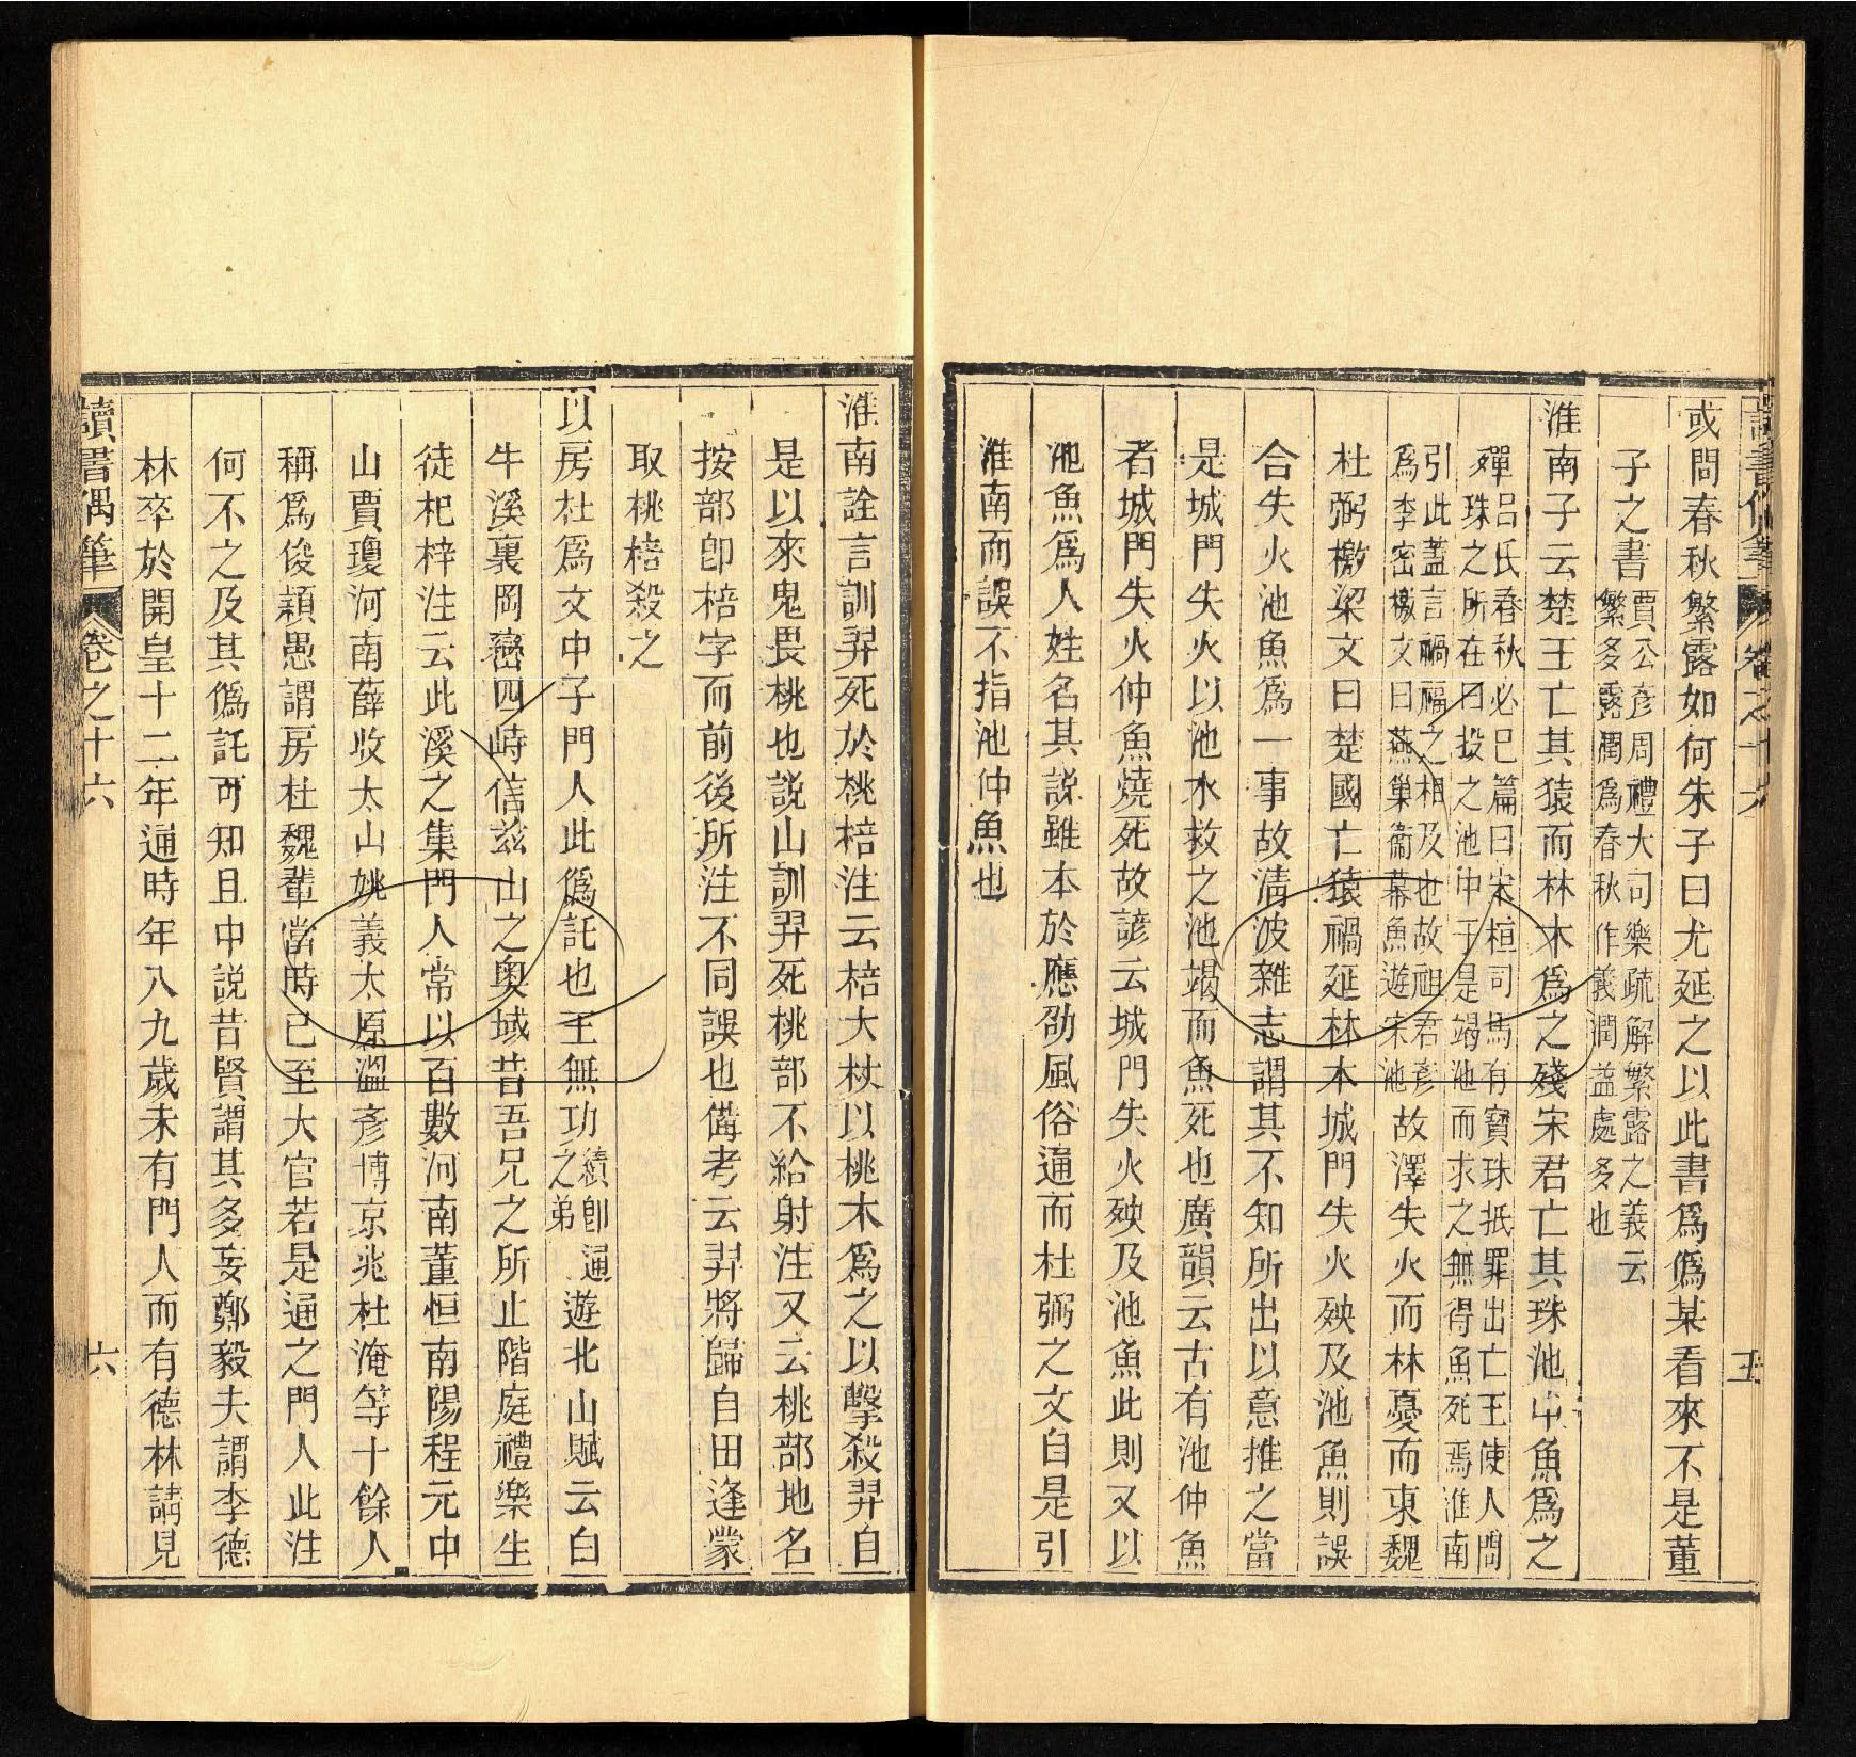 或問春秋繁露如何朱子曰尤延之以此書爲僞某看來不是董
子之書賈公彥周禮大司樂疏解繁露之義云
繁多露潤爲春秋作義潤益處多也
淮南子云楚王亡其猿而林木爲之殘宋君亡其珠池中魚爲之
殫呂氏春秋必巳篇曰宋桓司馬有寶珠抵罪出亡王使人問
珠之所在曰投之池中于是竭池而求之無得魚死焉淮南
引此蓋言禍福之相及也故祖君彥
爲李密檄文曰燕巢衞幕魚遊宋池故澤失火而林憂而東魏
杜弼檄梁文曰楚國亡猿禍延林木城門失火殃及池魚則誤
合失火池魚爲一事故清波雜志謂其不知所出以意推之當
是城門失火以池水救之池竭而魚死也廣韻云古有池仲魚
者城門失火仲魚燒死故諺云城門失火殃及池魚此則又以
池魚爲人姓名其說雖本於應劭風俗通而杜弼之文自是引
淮南而誤不指池仲魚也
讀書偶筆 卷之十六 五
淮南詮言訓羿死於桃棓注云棓大杖以桃木爲之以擊殺羿自
是以來鬼畏桃也說山訓羿死桃部不給射注又云桃部地名
按部卽棓字而前後所注不同誤也備考云羿將歸自田逢蒙
取桃棓殺之
以房杜爲文中子門人此僞託也王無功績卽通
之弟遊北山賦云白
牛溪裏岡巒四峙信茲山之奧域昔吾兄之所止階庭禮樂生
徒杞梓注云此溪之集門人常以百數河南董恒南陽程元中
山賈瓊河南薛收太山姚義太原溫彥博京兆杜淹等十餘人
稱爲俊穎愚謂房杜魏輩當時已至大官若是通之門人此注
何不之及其僞託可知且中說昔賢謂其多妄鄭毅夫謂李德
林卒於開皇十二年通時年八九歲未有門人而有德林請見
讀書偶筆 卷之十六 六